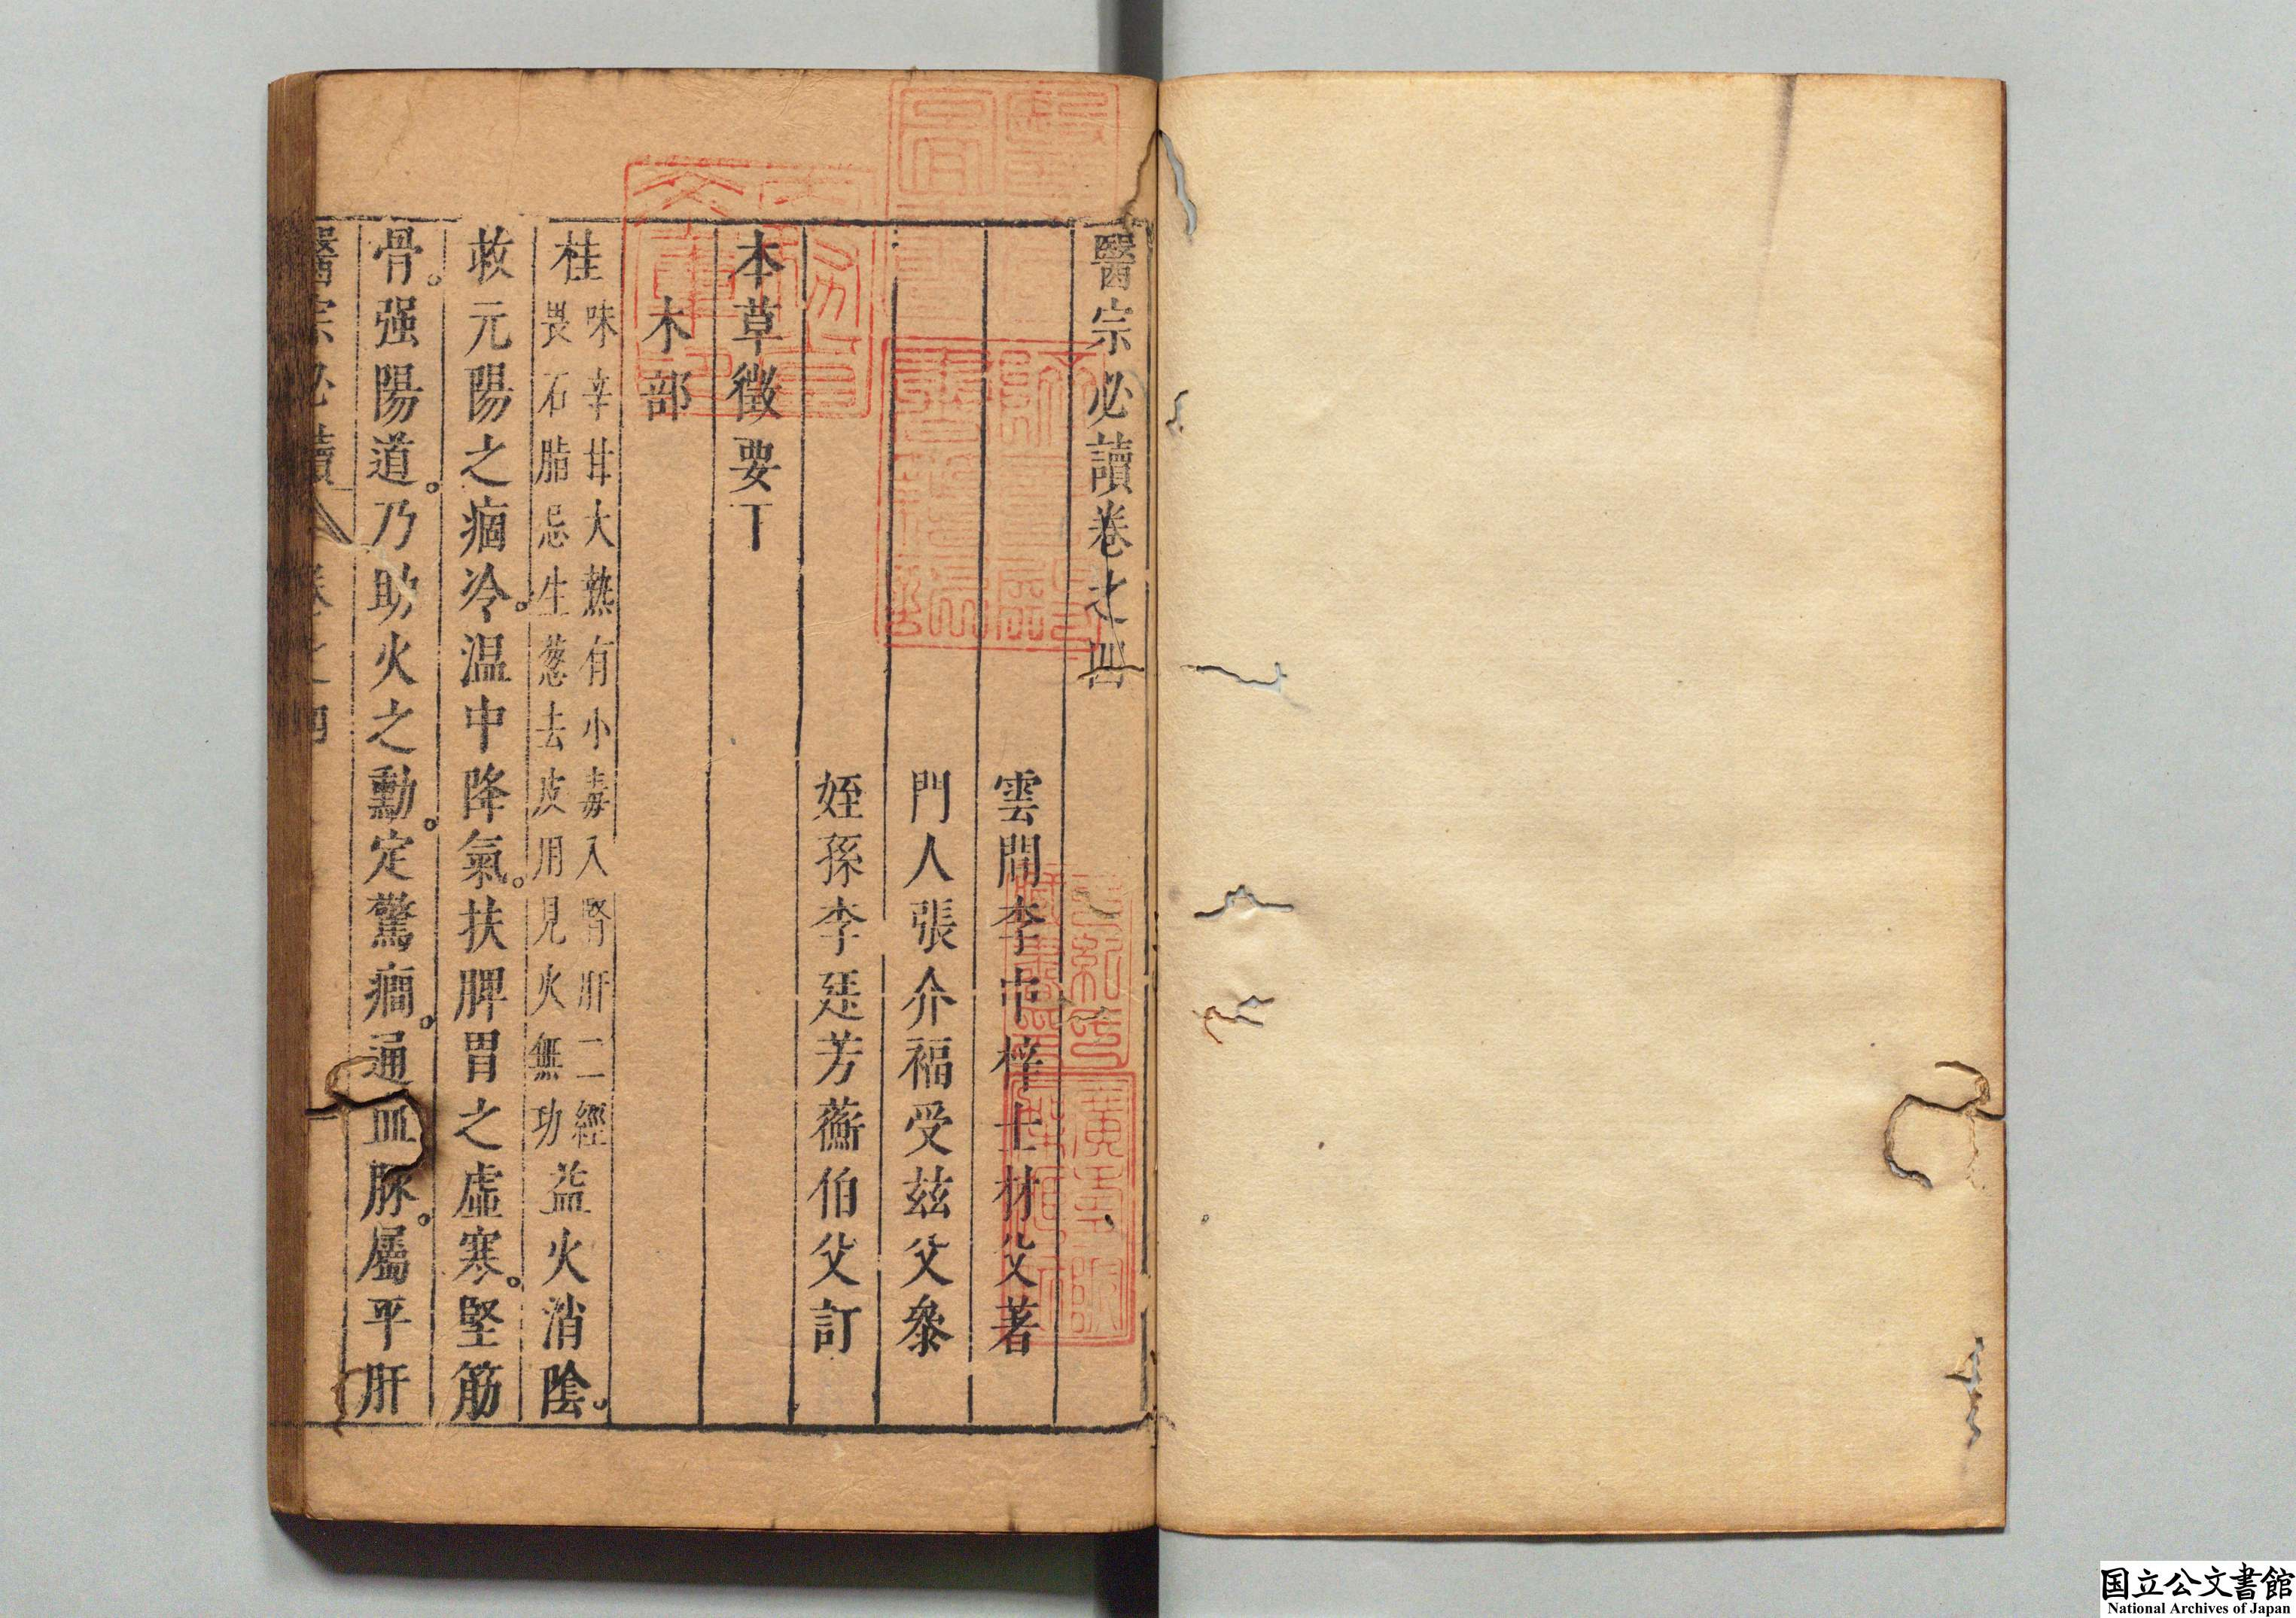 醫宗必讀卷之四
雲間李中梓士材父著
門人張介福受兹父叅
姪孫李廷芳蘅伯父訂
本草徵要下
木部
桂味辛甘大熱有小毒入腎肝二經
畏石脂忌生葱去皮用見火無功益火消陰。
救元陽之痼冷。温中降氣。扶脾胃之虛寒。堅筋
骨。强陽道。乃助火之勳。定驚癇。通血脉。屬平肝
醫宗必讀 卷之四
国立公文書館
National Archives of Japan